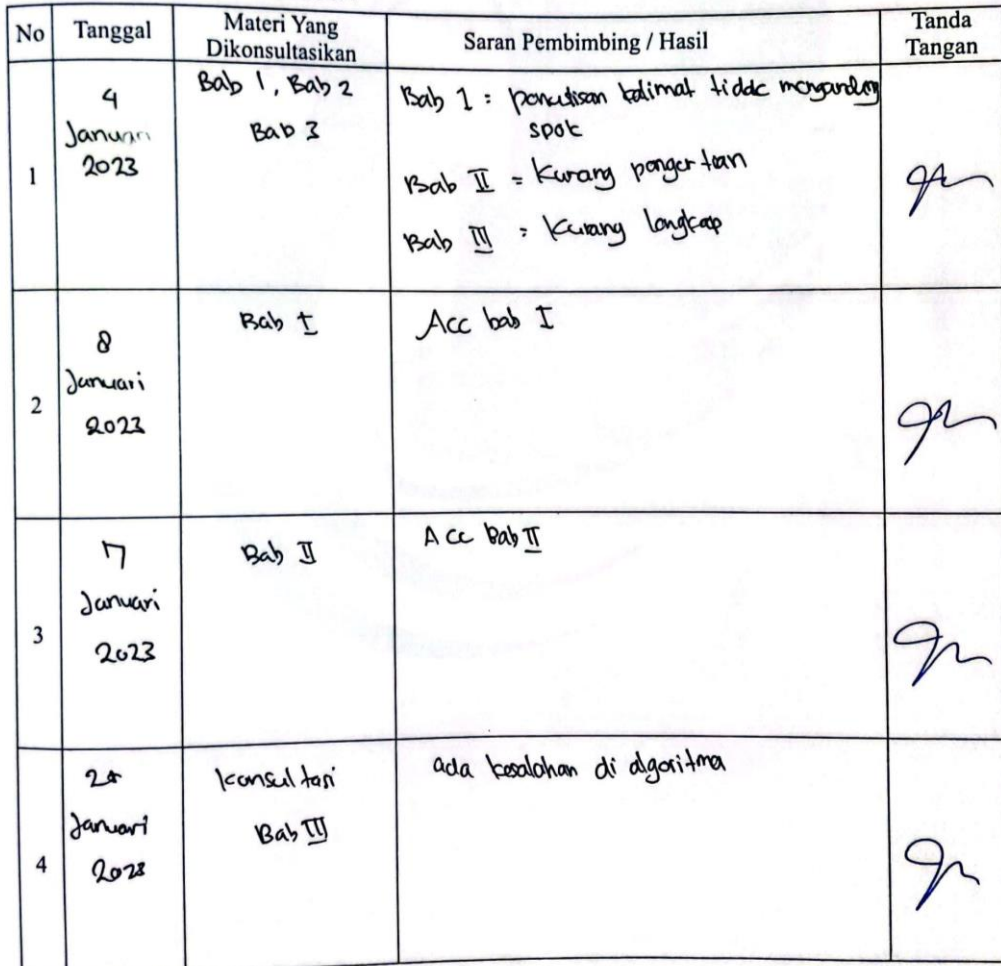 No Tanggal Materi Yang Dikonsultasikan Saran Pembimbing / Hasil Tanda Tangan
1
4
Januari
2023
Bab 1, Bab 2
Bab 3
Bab 1 : penulisan kalimat tidak mengandung
spok
Bab II = Kurang pengertian
Bab III : Kurang lengkap
2
8
Januari
2023
Bab I
Acc bab I
3
17
Januari
2023
Bab II
Acc Bab II
4
Januari
2023
Konsultasi
Bab III
ada kesalahan di algoritma